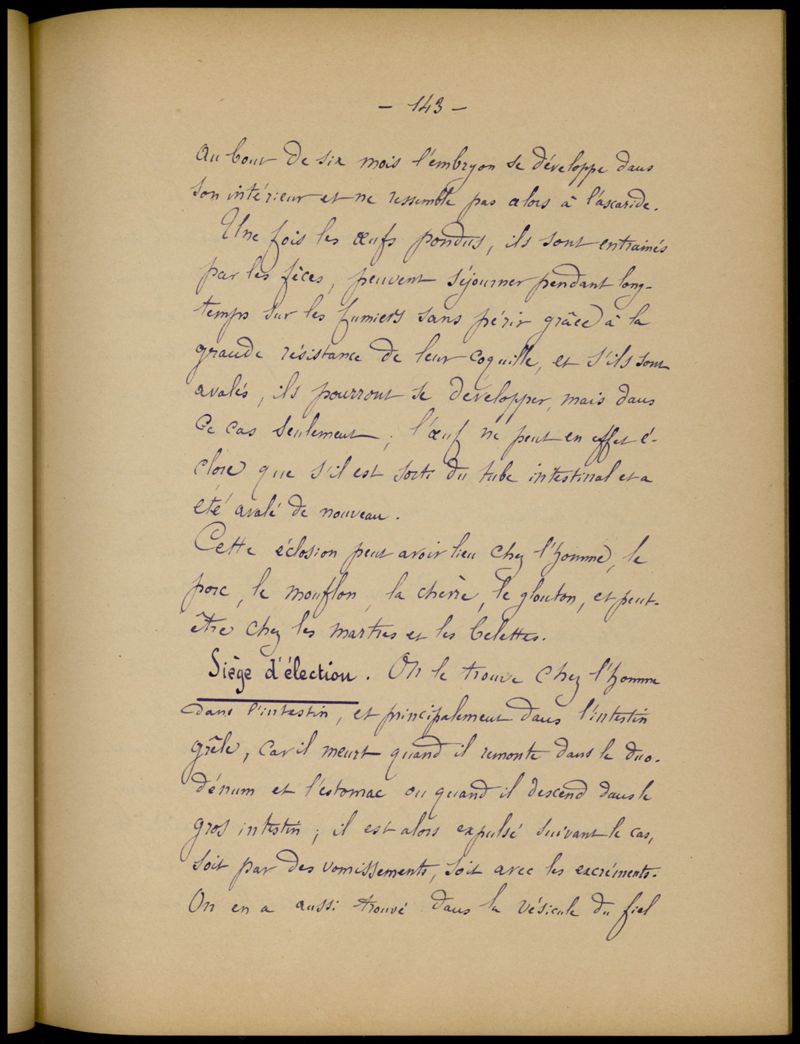 — 143 —
Au bout de six mois l'embryon se développe dans
son intérieur et ne ressemble pas alors à l'ascaride.
Une fois les œufs pondus, ils sont entrainés
par les fèces, peuvent séjourner pendant long-
temps sur les fumiers sans périr grâce à la
grande résistance de leur coquille, et s'ils sont
avalés, ils pourront se developper, mais dans
ce cas seulement ; l'œuf ne peut en effet é-
clore que s'il est sorti du tube intestinal et a
été avalé de nouveau.
Cette éclosion peut avoir lieu chez l'homme, le
porc, le mouflon, la chèvre, le glouton, et peut-
être chez les martres et les belettes.
Siège d'élection. On le trouve chez l'homme
dans l'intestin, et principalement dans l'intestin
grêle, car il meurt quand il remonte dans le duo-
dénum et l'estomac ou quand il descend dans le
gros intestin ; il est alors expulsé suivant le cas,
soit par des vomissements, soit avec les excréments.
On en a aussi trouvé dans la vésicule du fiel